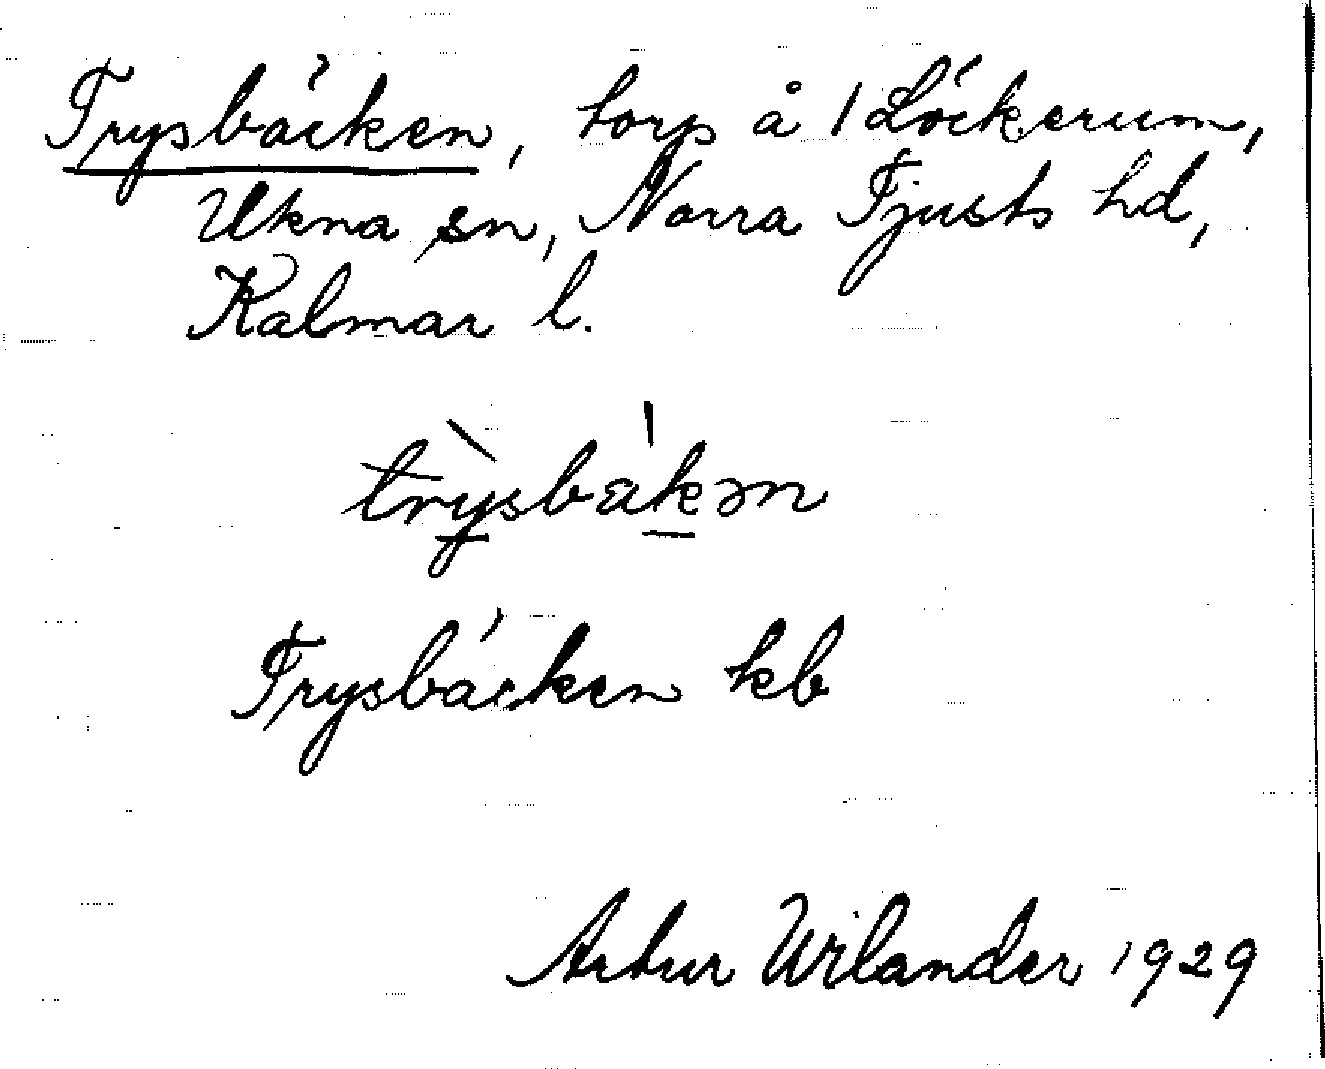 Trysbäcken, torp å 1 Löckerum,
Ukna sn, Norra Tjusts hd,
Kalmar l.
trỳsbäkən
Trysbäcken kb
Artur Wilander 1929